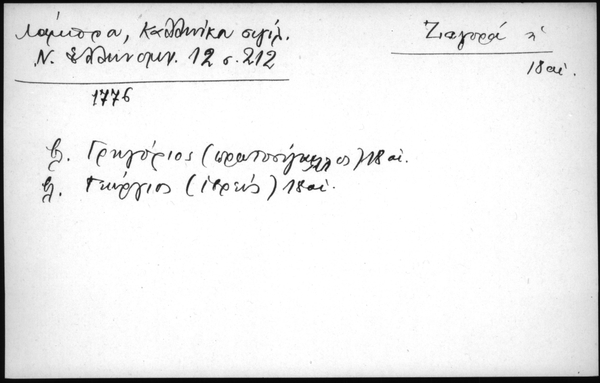 Λάμπρου, Καλλινίκα σιγίλ.
Ν. Ἑλληνομν. 12 σ. 212
1776
Ζιαγορᾶ
18 αἰ.
βλ. Γρηγόριος (πρωτοσύγκελλος) 18 αἰ.
βλ. Γεώργιος (ἱερεύς) 18 αἰ.